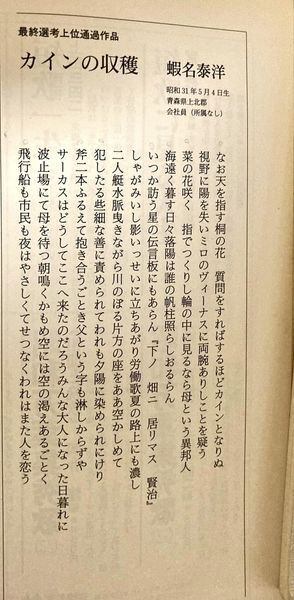 最終選考上位通過作品
カインの収穫
蝦名泰洋
昭和31年5月4日生
青森県上北郡
会社員(所属なし)
なお天を指す桐の花 質問をすればするほどカインとなりぬ
視野に陽を失いミロのヴィーナスに両腕ありしことを疑う
菜の花咲く 指でつくりし輪の中に見るなら母という異邦人
海遠く暮す日々落陽は誰の帆柱照らしおるらん
いつか訪う星の伝言板にもあらん『下ノ 畑ニ 居リマス 賢治』
しゃがみいし影いっせいに立ちあがり労働歌夏の路上にも濃し
二人艇水脈曳きながら川のぼる片方の座をああ空かしめて
犯したる些細な善に責められてわれも夕陽に染められにけり
斧二本ふるえて抱き合うごとき父という字も淋しからずや
サーカスはどうしてここへ来たのだろうみんな大人になった日暮れに
波止場にて母を待つ朝鳴くかもめ空には空の渇えあるごとく
飛行船も市民も夜はやさしくてせつなくわれはまた人を恋う